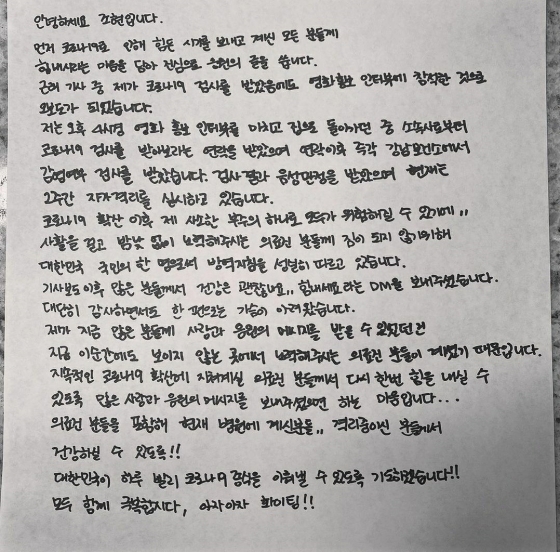 안녕하세요 조현입니다.
먼저 코로나19로 인해 힘든 시기를 보내고 계신 모든 분들께
힘내시라는 마음을 담아 진심으로 응원의 글을 씁니다.
근래 기사 중 제가 코로나19 검사를 받았음에도 영화홍보 인터뷰에 참석한 것으로
보도가 되었습니다.
저는 오후 4시경 영화 홍보 인터뷰를 마치고 집으로 돌아가던 중 소속사로부터
코로나19 검사를 받아보라는 연락을 받았으며 연락이후 즉각 강남보건소에서
감염여부 검사를 받았습니다. 검사결과 음성판정을 받았으며 현재는
2주간 자가격리를 실시하고 있습니다.
코로나19 확산 이후 제 사소한 부주의 하나로 모두가 위험해질 수 있기에,,
사활을 걸고 밤낮 없이 노력해주시는 의료진 분들께 짐이 되지 않기위해
대한민국 국민의 한 명으로써 방역지침을 성실히 따르고 있습니다.
기사보도이후 많은 분들께서 건강은 괜찮냐요,, 힘내세요 라는 DM을 보내주셨습니다.
대단히 감사하면서도 한 편으로는 가슴이 아려왔습니다.
제가 지금 많은 분들께 사랑과 응원의 메시지를 받을 수 있었던 건
지금 이순간에도 보이지 않는 곳에서 노력해주시는 의료진 분들이 계셨기 때문입니다.
지속적인 코로나19 확산에 지쳐계실 의료진 분들께서 다시 한번 힘을 내실 수
있도록 많은 사랑과 응원의 메시지를 보내주셨으면 하는 마음입니다...
의료진 분들을 포함해 현재 병원에 계신분들,, 격리중이신 분들께서
건강하실 수 있도록!!
대한민국이 하루 빨리 코로나19 종식을 이뤄낼 수 있도록 기도하겠습니다!!
모두 함께 극복합시다, 아자아자 화이팅!!